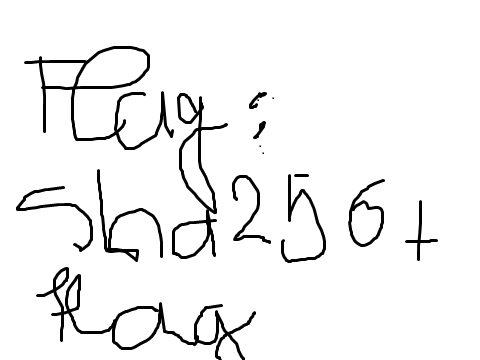 Flag:
Sha256+
flag